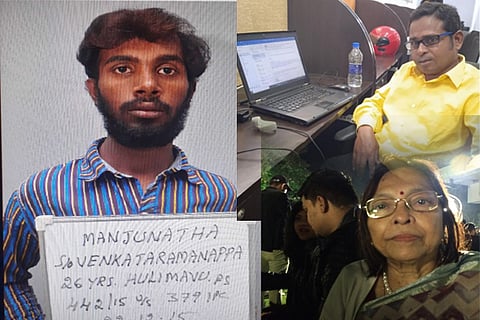 MANJUNATHA
S/o VENKATARAMANAPPA
26 YRS. HULIMAVU PS
442/15 U/s 379 IPC
22-12-15